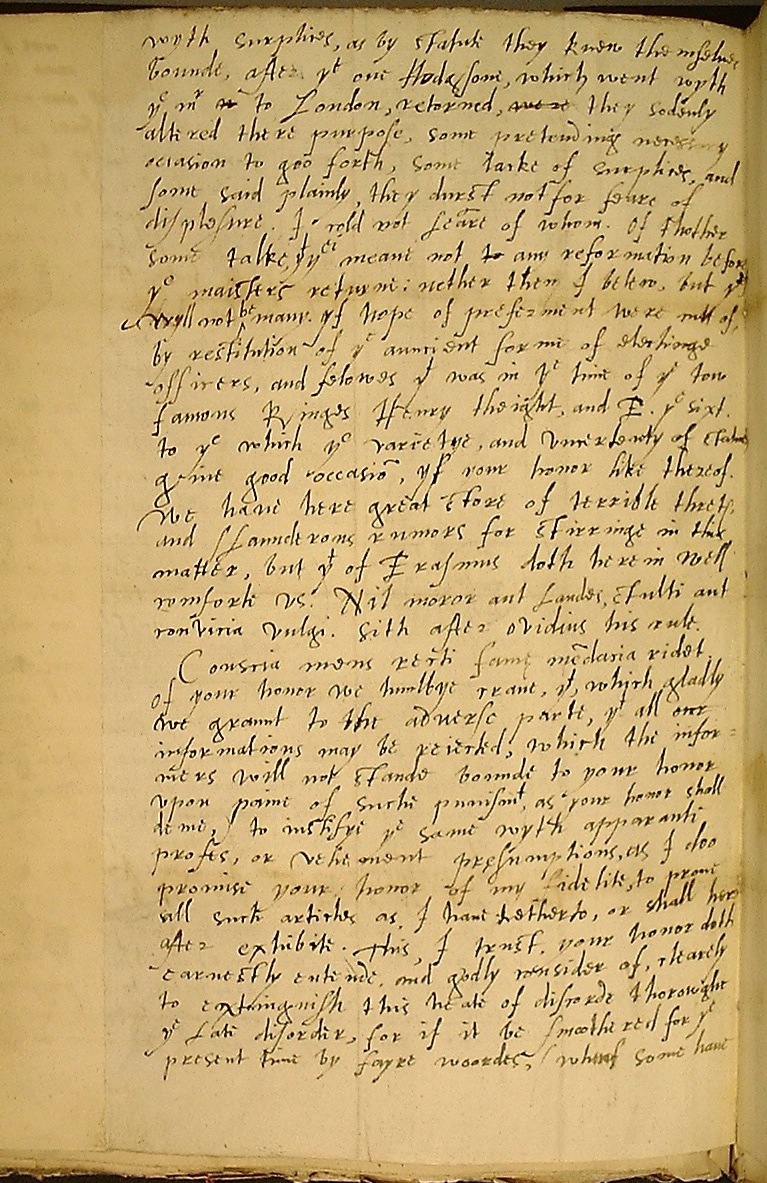 wyth surplices, as by statute they knew themselues
bounde, after yt one Hodgsone, which went wyth
ye mr to London, retorned, were they sodenly
altered there purpose, some pretending necessary
occasion to goo forth, some lacke of surplices, and
some said plainly, they durst not for feare of
displesure. I cold not leare of whom. Of thother
some talke, yt yei meane not to any reformation before
ye maisters returne: nether then I beleue, but yt
wyll not be many. yf hope of preferment were cutt of,
by restitution of ye auncient forme of electinge
officers, and felowes yt was in ye time of ye tow
famous Kinges Henry theight, and E. ye sixt.
to ye which ye varietye, and vncertenty of statute
giue good occasiō, yf your honor like thereof.
We haue here great store of terrible thretꝭ,
and slaunderous rumors for stirringe in this
matter, but yt of Erasmus doth herein well
comforte vs. Nil moror aut laudes, stulti aut
conuicia vulgi. Sith after ovidius his rule.
Conscia mens recti famę mēdacia ridet.
Of your honor we humblye craue, yt, which gladly
we graunt to the aduerse parte, yt all our
informations may be reiected, which the infor=
mers will not stande bounde to your honor
vpon paine of suche punismt, as your honor shall
deme, to iustifye ye same wyth apparant
profes, or vehement presumptions, as I doo
promise your honor of my fidelite, to proue
all such articles as I haue hetherto, or shall her
after exhibite. This, I trust, your honor doth
earnestly entende, and godly consider of, clearely
to extinguish this heate of discorde thorowghe
ye late disorder, for if it be smoothered for ye
present time by fayre woordes, some haue